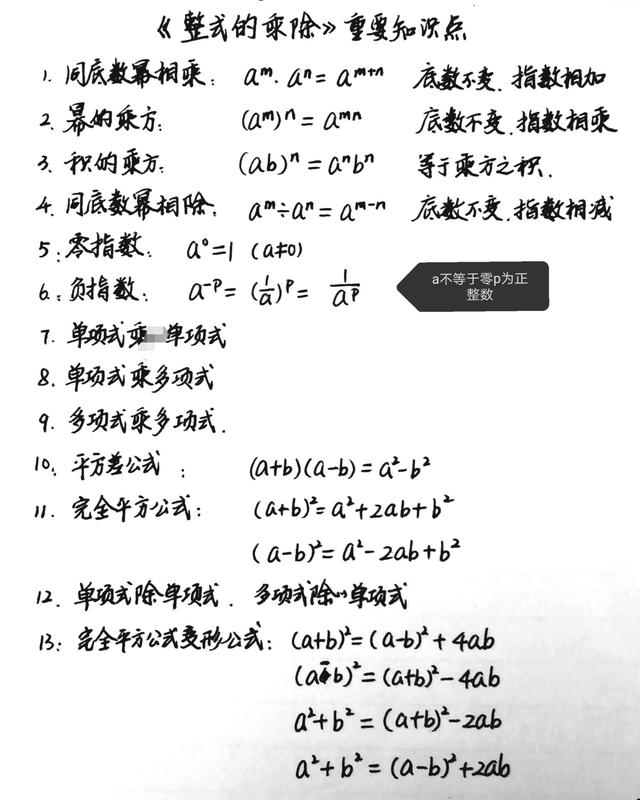 《整式的乘除》重要知识点
1. 同底数幂相乘: aᵐ·aⁿ=aᵐ⁺ⁿ 底数不变.指数相加
2. 幂的乘方: (aᵐ)ⁿ=aᵐⁿ 底数不变.指数相乘
3. 积的乘方: (ab)ⁿ=aⁿbⁿ 等于乘方之积.
4. 同底数幂相除: aᵐ÷aⁿ=aᵐ⁻ⁿ 底数不变.指数相减
5: 零指数: a⁰=1 (a≠0)
6: 负指数: a⁻ᵖ=(1/a)ᵖ=1/aᵖ
a不等于零p为正
整数
7. 单项式乘单项式
8. 单项式乘多项式
9. 多项式乘多项式.
10: 平方差公式: (a+b)(a-b)=a²-b²
11. 完全平方公式: (a+b)²=a²+2ab+b²
(a-b)²=a²-2ab+b²
12. 单项式除单项式. 多项式除以单项式
13: 完全平方公式变形公式: (a+b)²=(a-b)²+4ab
(a-b)²=(a+b)²-4ab
a²+b²=(a+b)²-2ab
a²+b²=(a-b)²+2ab